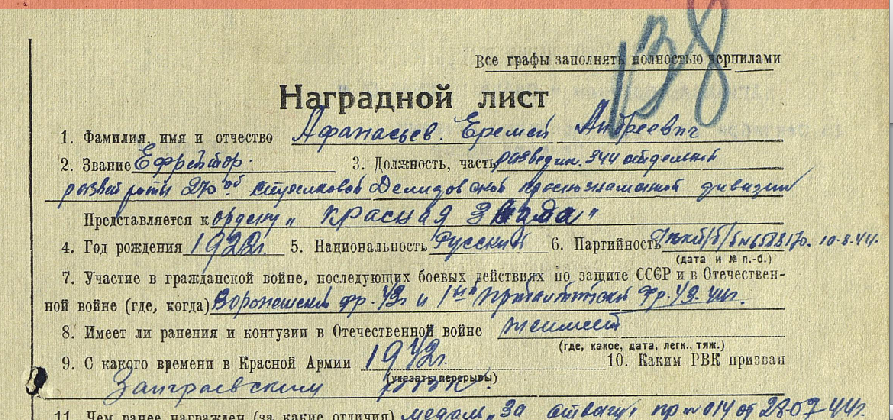 138
Все графы заполнять полностью чернилами
Наградной лист
1. Фамилия, имя и отчество Афанасьев Еремей Андреевич
2. Звание Ефрейтор. 3. Должность, часть разведчик 344 отдельной
развед роты 270ой стрелковой Демидовской краснознаменной дивизии
Представляется к ордену "Красная Звезда"
4. Год рождения 1922г. 5. Национальность Русский 6. Партийность 10-8-44г.
(дата и № п.-б.)
7. Участие в гражданской войне, последующих боевых действиях по защите СССР и в Отечествен-
ной войне (где, когда) Воронежский фр-43г и 1ый прибалтийский фр. 43-44г.
8. Имеет ли ранения и контузии в Отечественной войне не имеет
(где, какое, дата, легк., тяж.)
9. С какого времени в Красной Армии 1942г. 10. Каким РВК призван
(указать перерывы)
Заиграевским РВК
11. Чем ранее награжден (за какие отличия) медаль "За отвагу" пр № 014 от 28.07.44г.